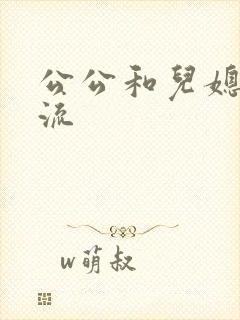 公公和兒媳
流
w萌叔